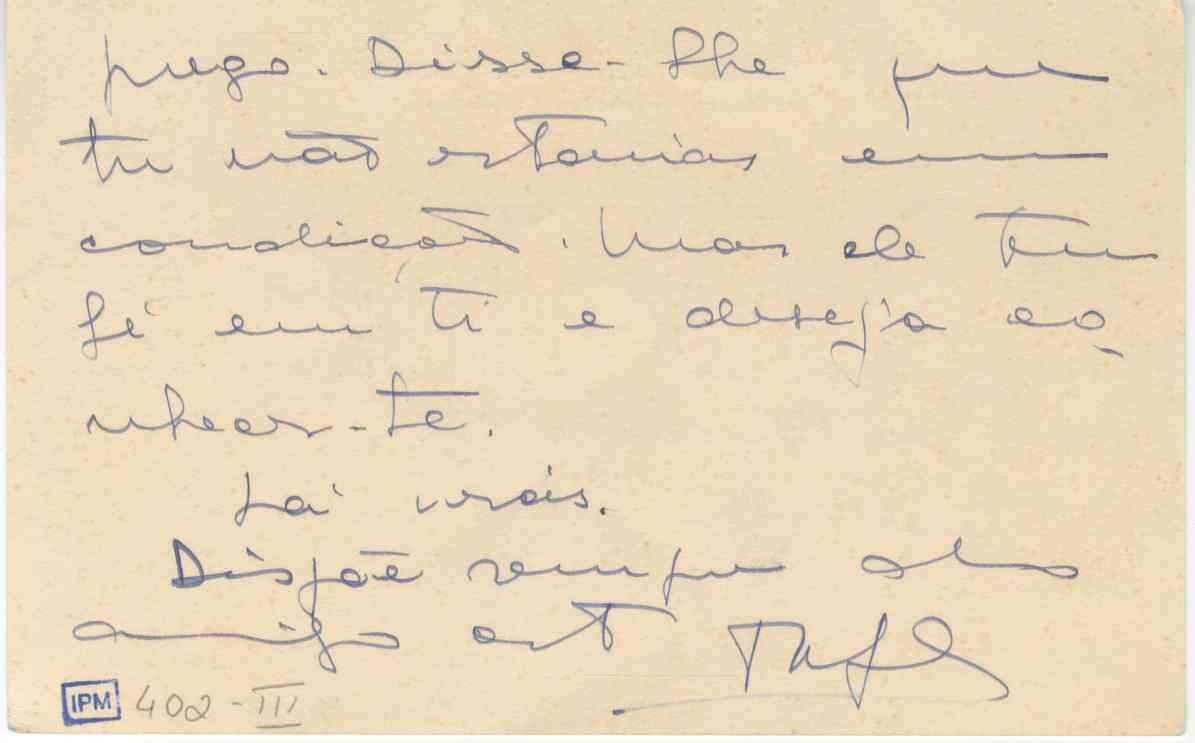 Disse-lhe que
tu não estarias em
condição. Mas ele tem
fé em ti e deseja co-
nhecer-te.
verás.
Dispõe sempre do
amigo
IPM 402-III